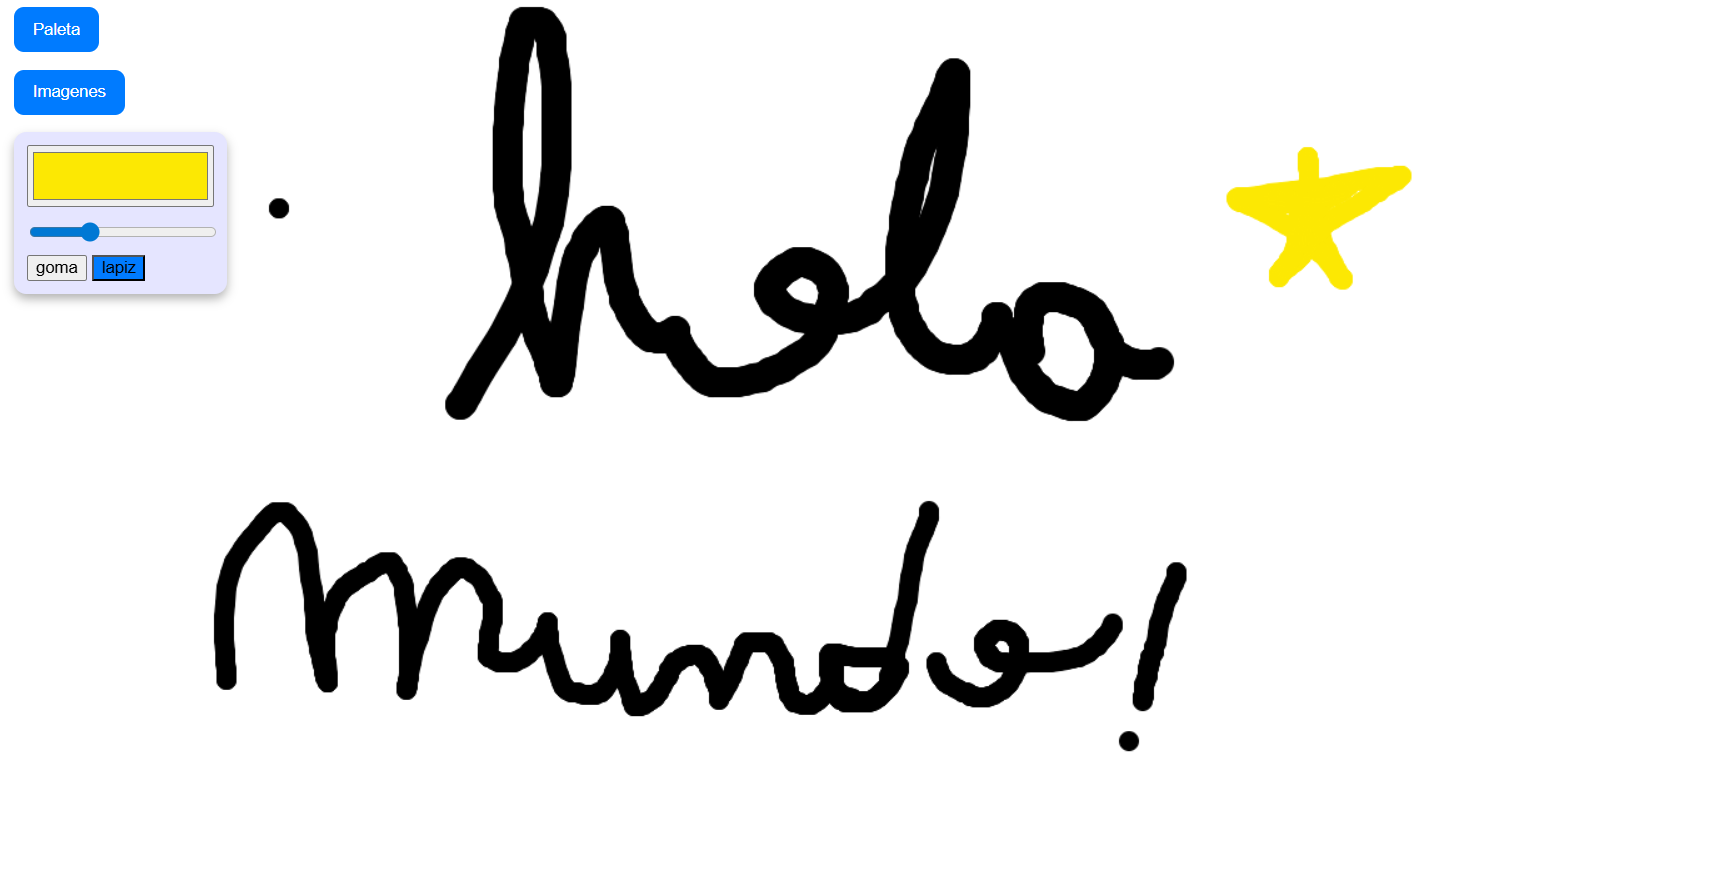 Paleta
Imagenes
goma lapiz
hola
mundo!